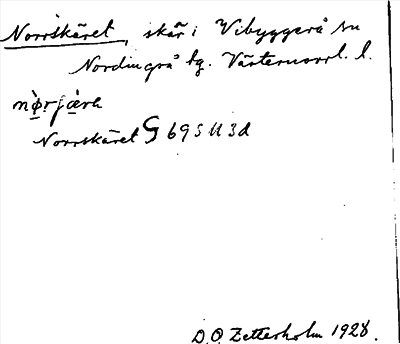 Norrskäret, skär i Vibyggerå sn
Nordingrå tg. Västernorrl. l.
Norrskäret G 69 S U 3 d
D. O. Zetterholm 1928.